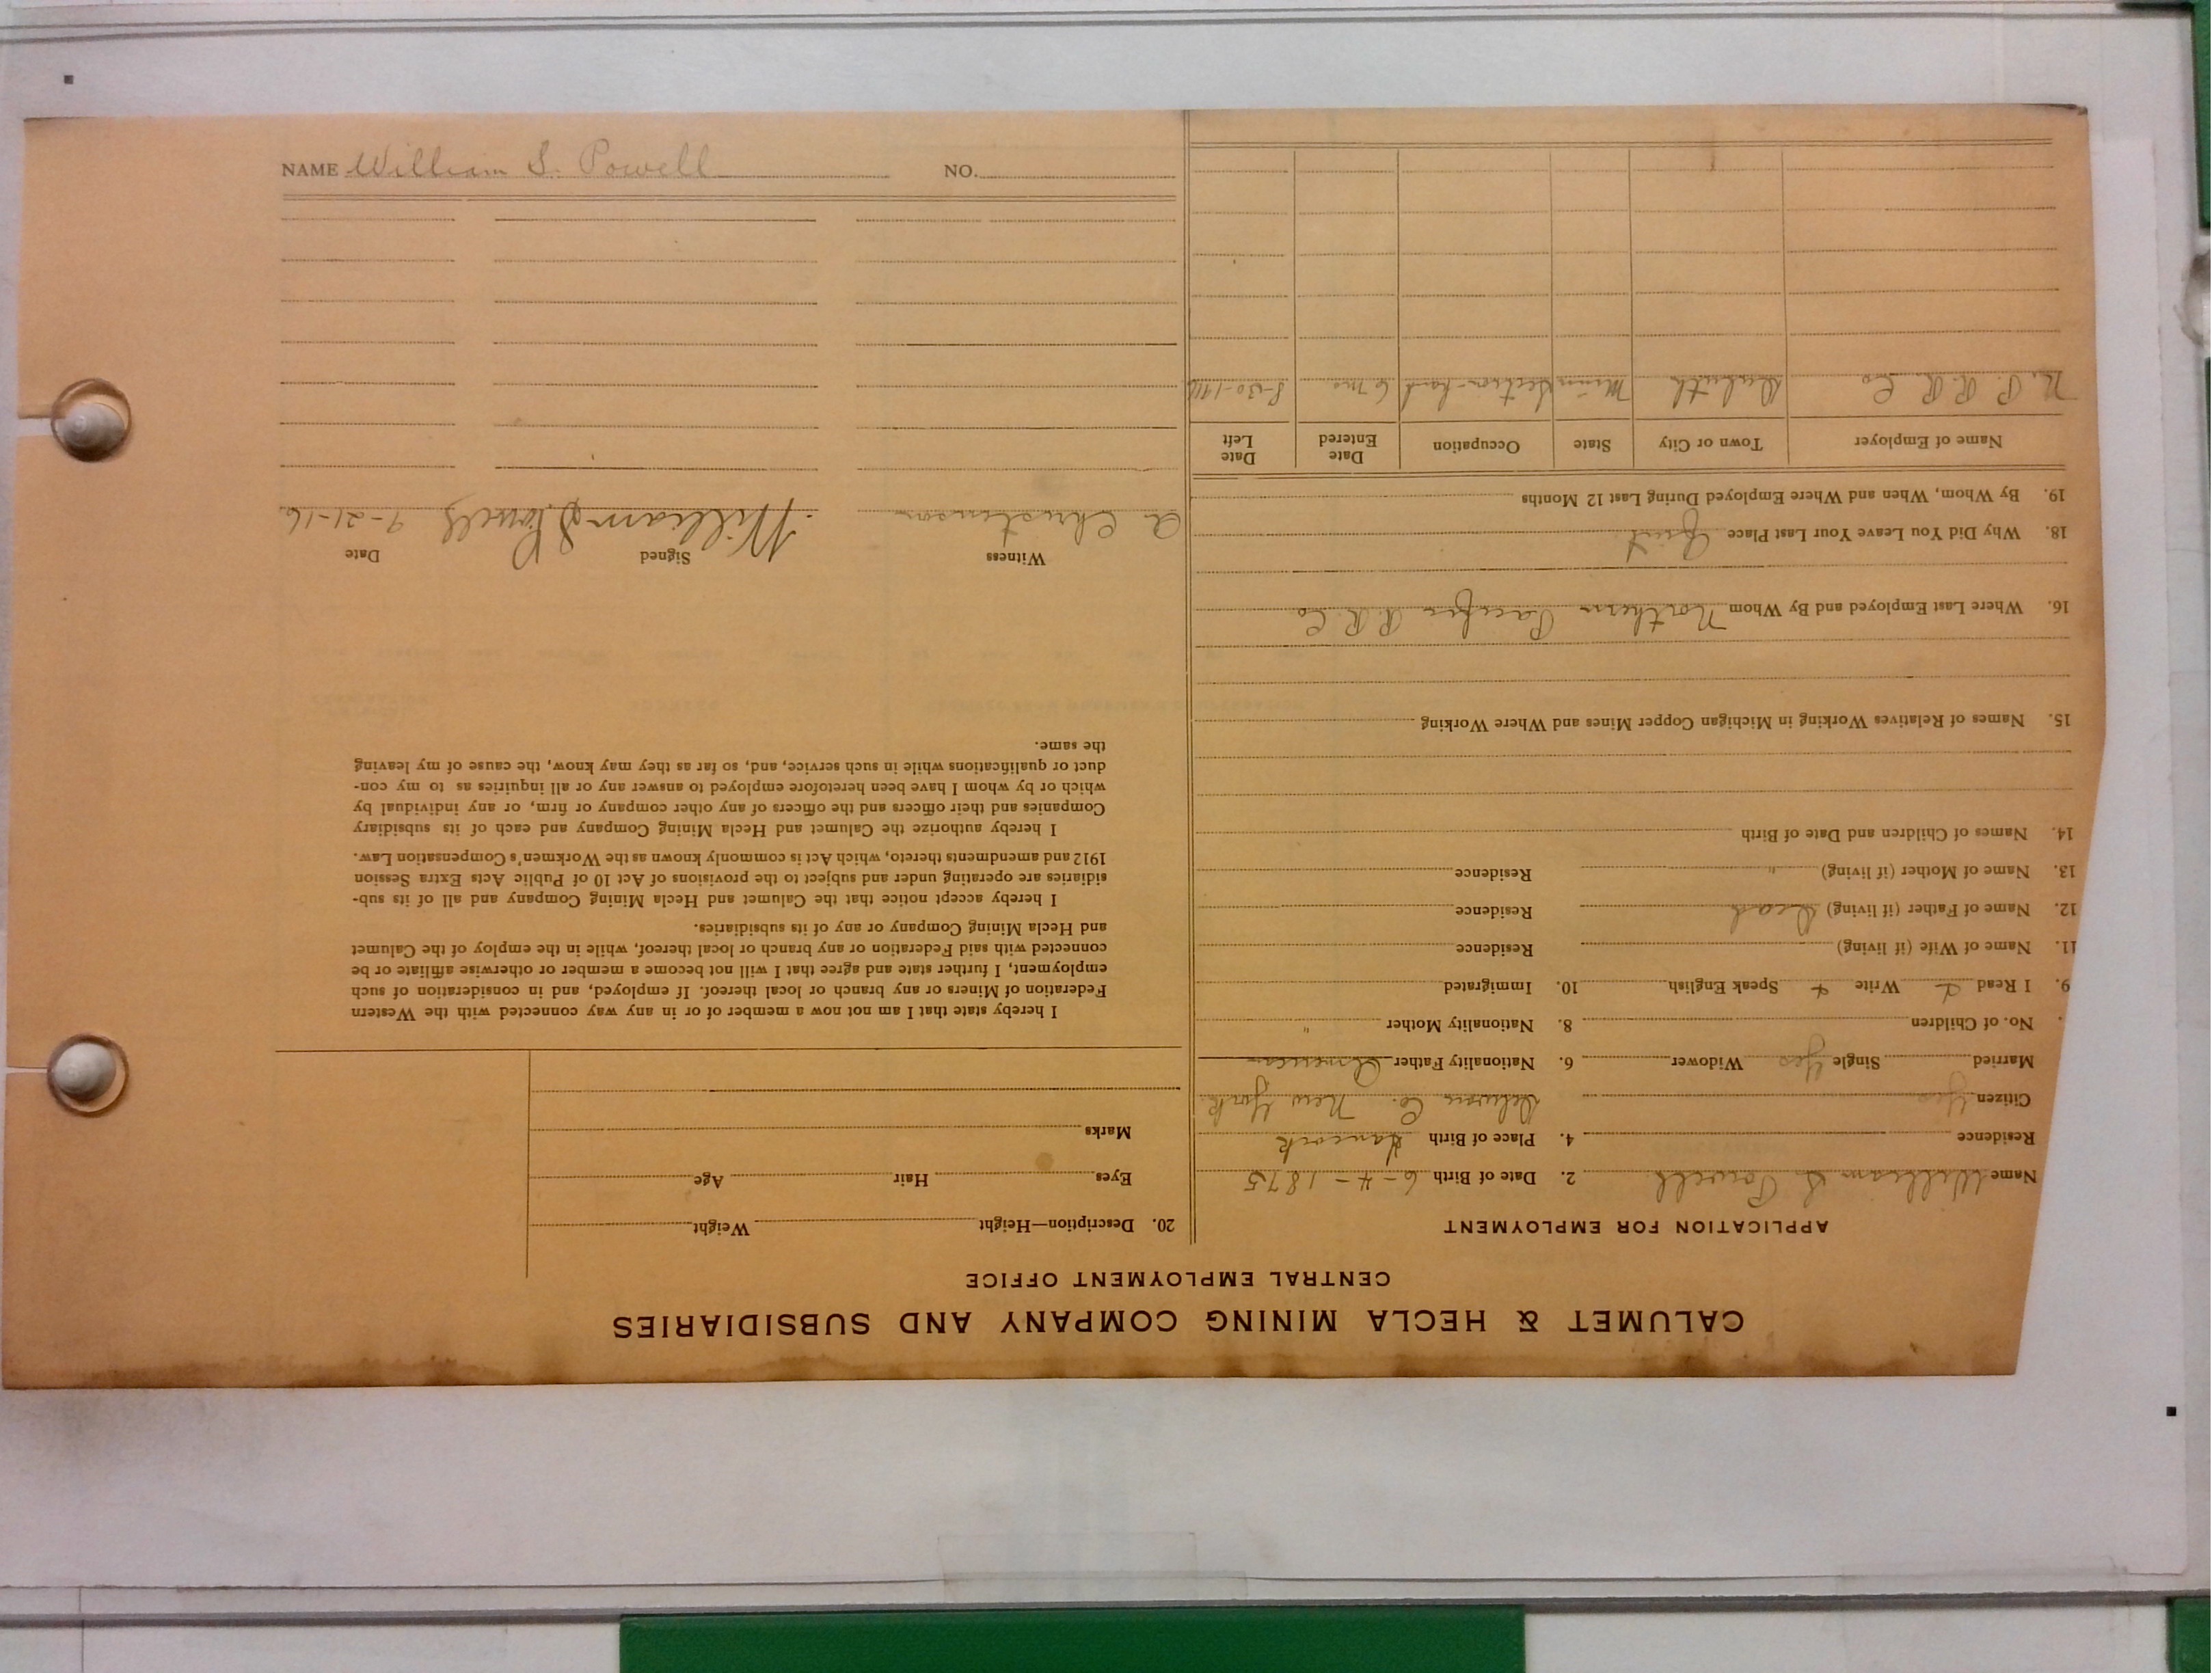 CALUMET & HECLA MINING COMPANY AND SUBSIDIARIES
CENTRAL EMPLOYMENT OFFICE
APPLICATION FOR EMPLOYMENT
Name William S. Powell 2. Date of Birth 6-4-1875
Residence 4. Place of Birth Hancock
Citizen Yes Co. New York
Married Single Yes Widower 6. Nationality Father America
No. of Children 8. Nationality Mother "
9. I Read Write Speak English 10. Immigrated
11. Name of Wife (if living) Residence
12. Name of Father (if living) Dead Residence
13. Name of Mother (if living) " Residence
14. Names of Children and Date of Birth
15. Names of Relatives Working in Michigan Copper Mines and Where Working
16. Where Last Employed and By Whom Northern Pacific R. R. Co
18. Why Did You Leave Your Last Place Quit
19. By Whom, When and Where Employed During Last 12 Months
Name of Employer Town or City State Occupation Date Entered Date Left
N. P. R. R. Co Duluth Minn Section-hand 6 mo 8-30-1916
20. Description—Height Weight
Eyes Hair Age
Marks
I hereby state that I am not now a member of or in any way connected with the Western
Federation of Miners or any branch or local thereof. If employed, and in consideration of such
employment, I further state and agree that I will not become a member or otherwise affiliate or be
connected with said Federation or any branch or local thereof, while in the employ of the Calumet
and Hecla Mining Company or any of its subsidiaries.
I hereby accept notice that the Calumet and Hecla Mining Company and all of its sub-
sidiaries are operating under and subject to the provisions of Act 10 of Public Acts Extra Session
1912 and amendments thereto, which Act is commonly known as the Workmen's Compensation Law.
I hereby authorize the Calumet and Hecla Mining Company and each of its subsidiary
Companies and their officers and the officers of any other company or firm, or any individual by
which or by whom I have been heretofore employed to answer any or all inquiries as to my con-
duct or qualifications while in such service, and, so far as they may know, the cause of my leaving
the same.
Witness Signed Date
A Christenson William S Powell 9-21-16
NAME William S. Powell NO.